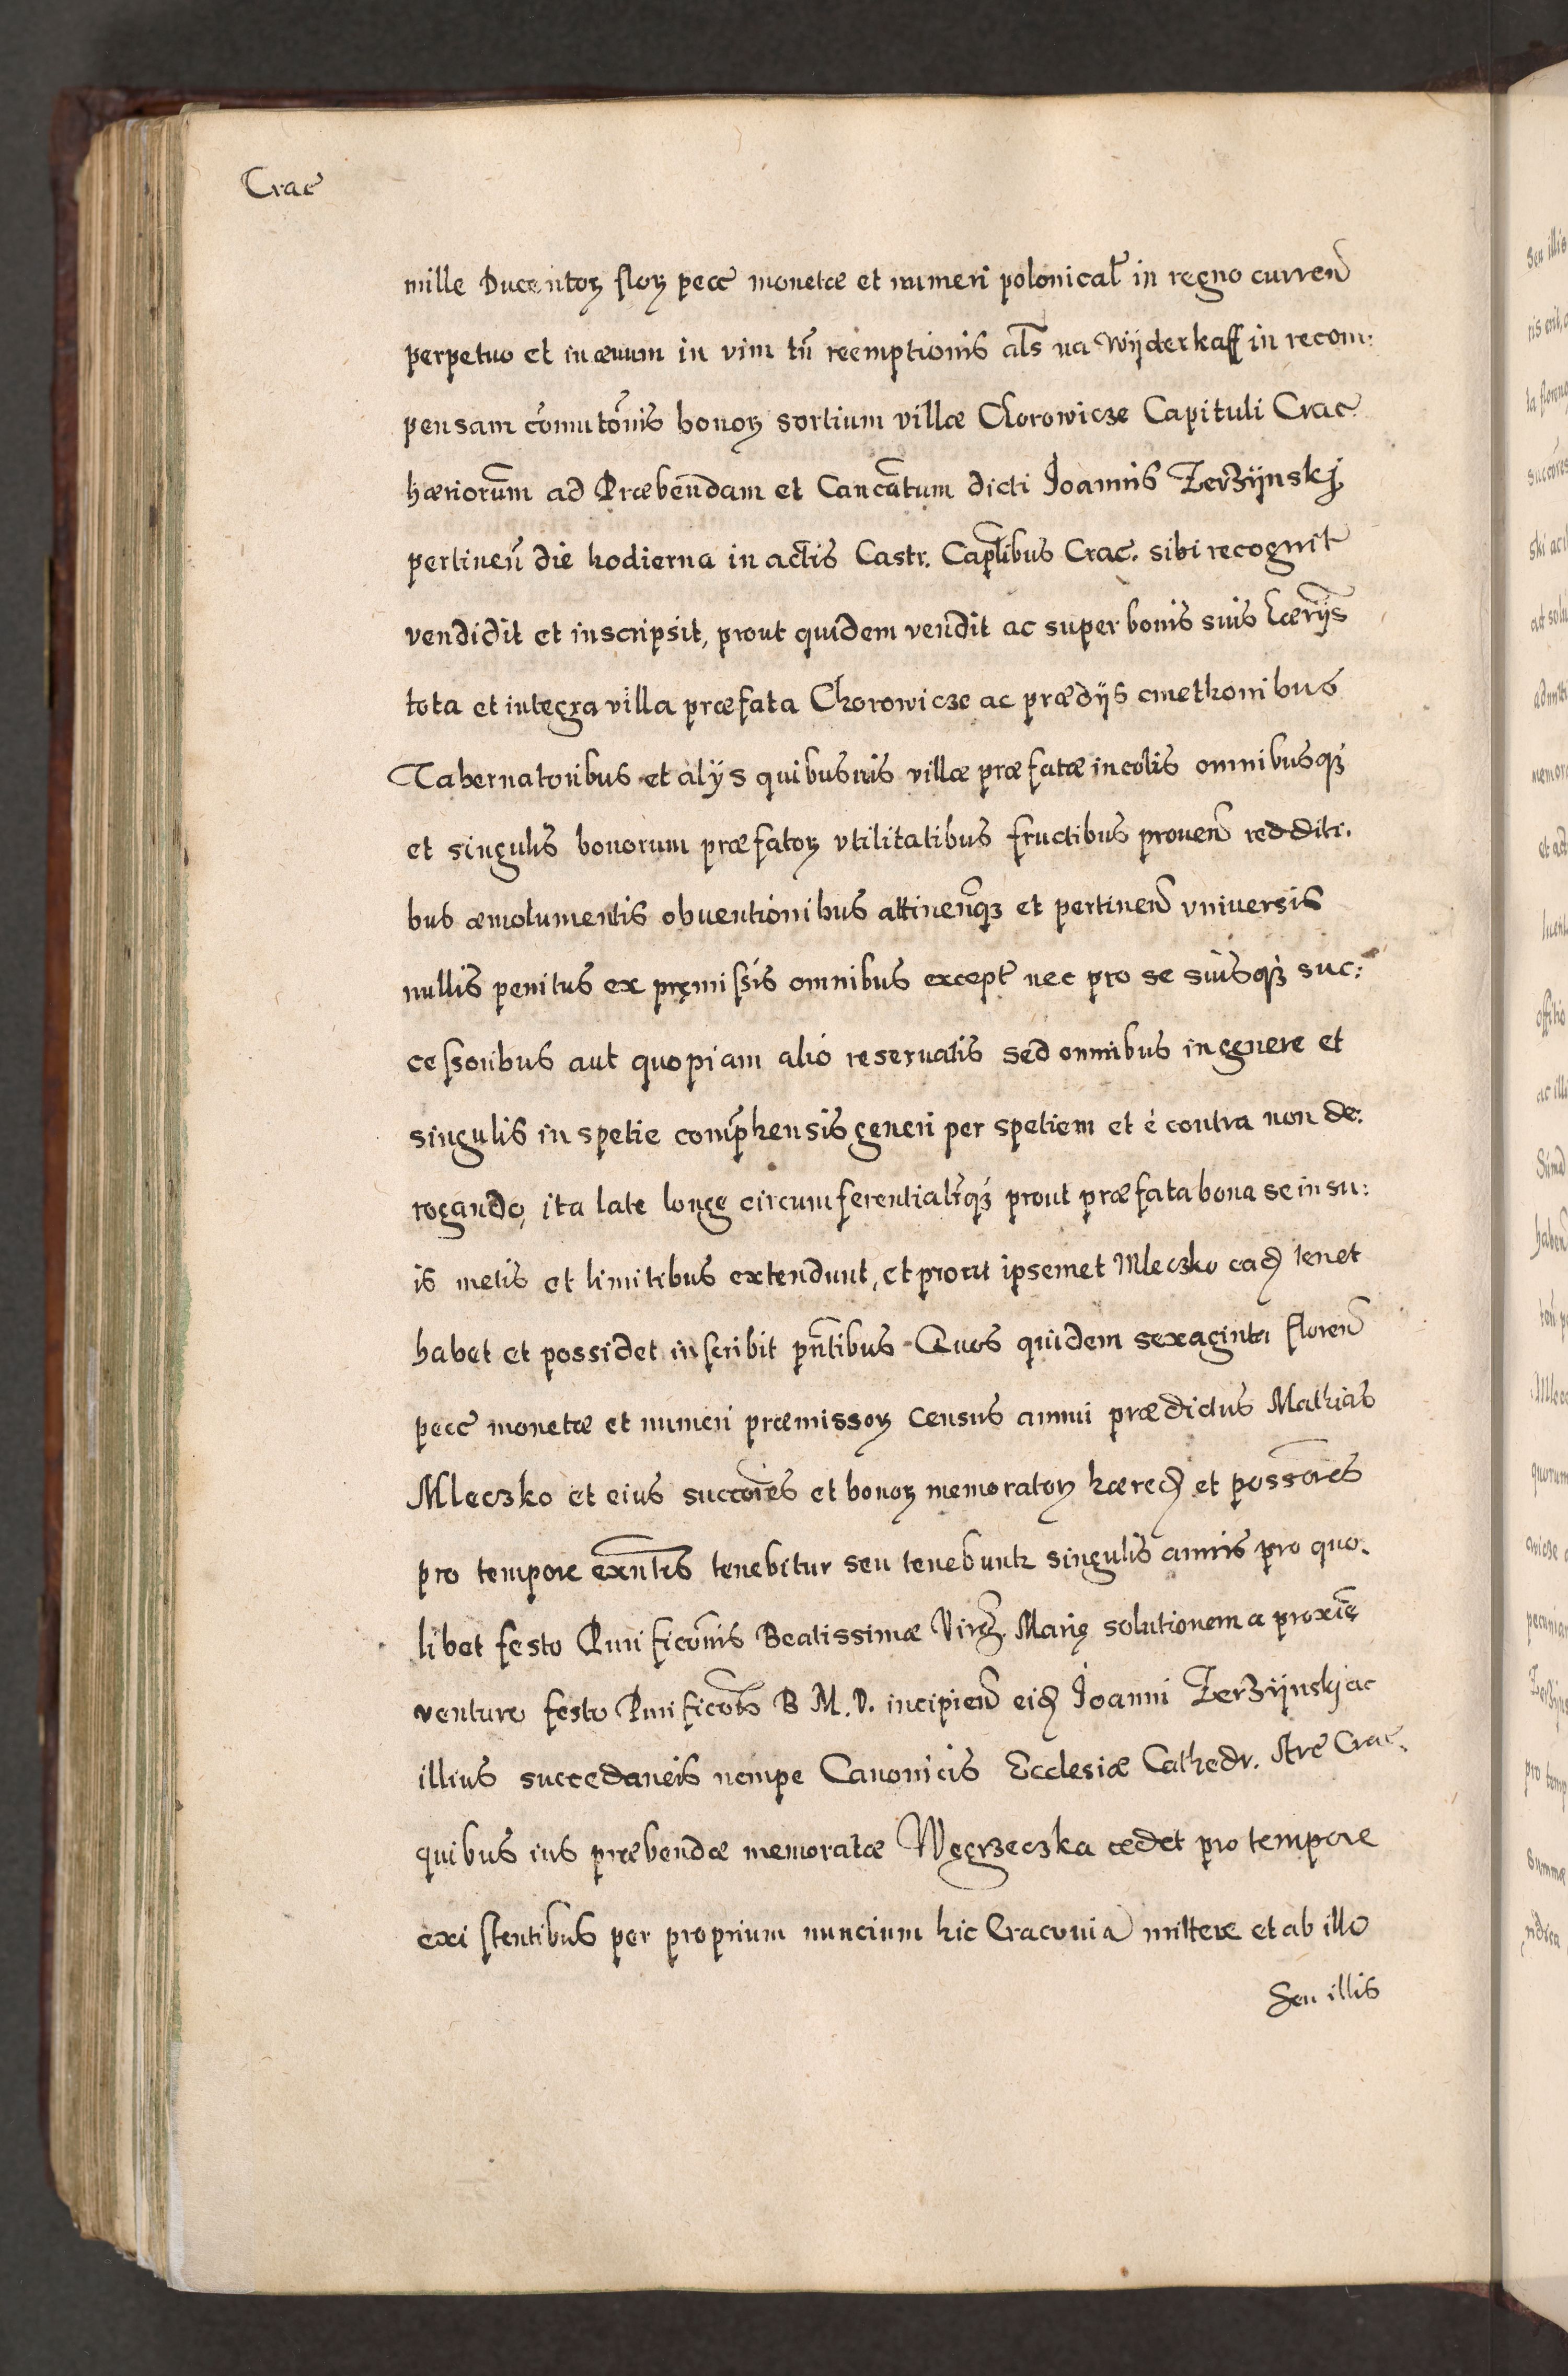 Crac
mille Ducentoꝝ floꝝ pecc monetæ et numeri polonical in regno curren
perpetuo et in æuum in vim tñ reemptionis als na Wÿderkaff in recom:
pensam com̃utõnis bonoꝝ sortium villæ Chorowicze Capituli Crac
hæriorum ad Præbendam et Cancatum dicti Joannis Zerzÿnskj
pertineñ die hodierna in actis Castr. Captlibus Crac. sibi recognit
vendidit et inscripsit, prout quidem vendit ac super bonis suis hærijs
tota et integra villa præfata Chorowicze ac prædijs cmethonibus
Tabernatoribus et alijs quibusuis villæ præfatæ incolis omnibusqꝫ
et singulis bonorum præfatoꝝ vtilitatibus fructibus prouen redditi.
bus æmolumentis obuentionibus attinenqꝫ et pertinen vniuersis
nullis penitus ex pręmissis omnibus except nec pro se suisqꝫ suc:
cessoribus aut quopiam alio reseruatis sed omnibus in genere et
singulis in spetie comphensis generi per spetiem et è contra non de:
rogando, ita late longe circumferentialrqꝫ prout præfata bona se in su:
is metis et limitibus extendunt, et prout ipsemet Mleczko ead tenet
habet et possidet inscribit pñtibus. Quos quidem sexaginta floren
pecc monetæ et numeri præmissoꝝ census annui prædictus Mathias
Mleczko et eius succores et bonoꝝ memoratoꝝ hæred et possores
pro tempore exñtes tenebitur seu tenebuntr singulis annis pro quo.
libet festo Purificõnis Beatissimæ Virg. Marię solutionem a proxie
venturo festo Purificõis B M. V. incipien eid Joanni Zerzÿnskj ac
illius succedaneis nempe Canonicis Ecclesiæ Cathedr. Crac.
quibus ius præbendæ memoratæ Węgrzeczka cedet pro tempore
existentibus per proprium nuncium hic Cracouia mittere et ab illo
Seu illis